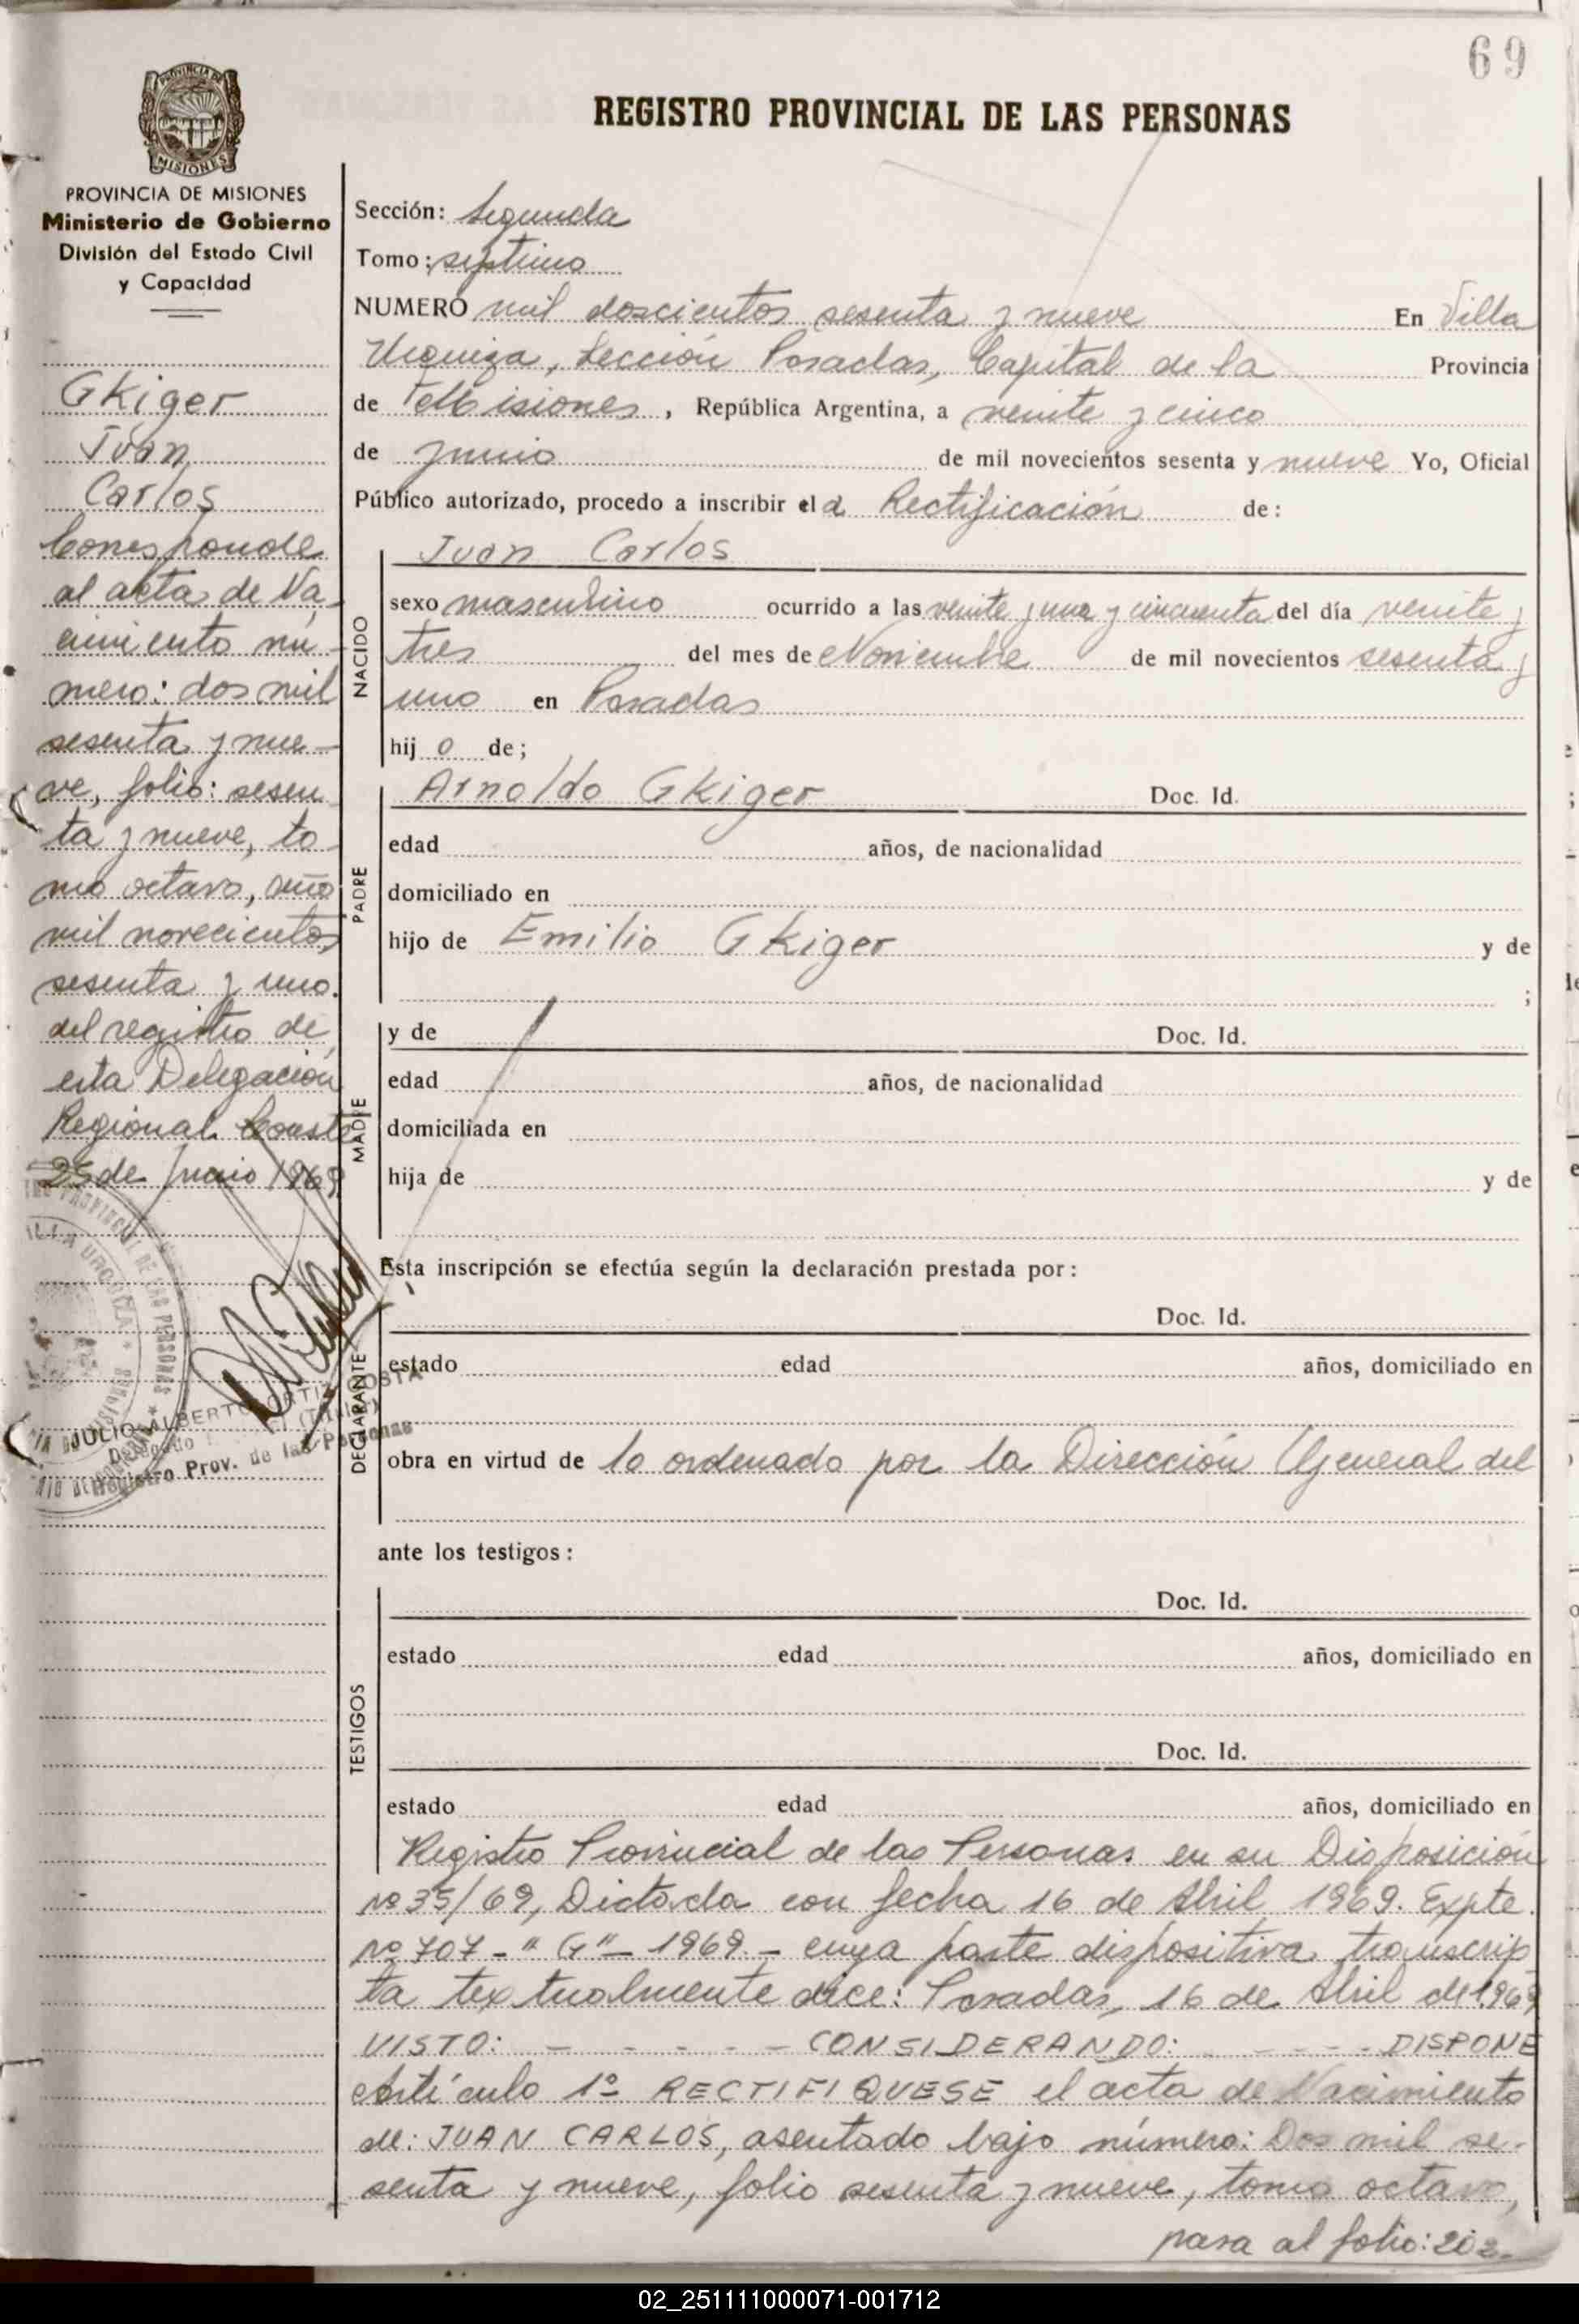 69
REGISTRO PROVINCIAL DE LAS PERSONAS
PROVINCIA DE MISIONES
Ministerio de Gobierno
División del Estado Civil
y Capacidad
Gkiger
Juan
Carlos
Corresponde
al acta de Na
cimiento nú
mero: dos mil
sesenta y nue
ve, folio: sesen
ta y nueve, to
mo octavo, año
mil novecientos
sesenta y uno.
del registro de
esta Delegación
Regional. Conste
25 de Junio 1969
JULIO ALBERTO ORTIZ COSTA
Delegado (Titular)
Registro Prov. de las Personas
Sección: Segunda
Tomo: septimo
NUMERO mil doscientos sesenta y nueve En Villa
Urquiza, Sección Posadas, Capital de la Provincia
de Misiones, República Argentina, a veinte y cinco
de Junio de mil novecientos sesenta y nueve Yo, Oficial
Público autorizado, procedo a inscribir el a Rectificación de:
NACIDO
Juan Carlos
sexo masculino ocurrido a las veinte y una y cincuenta del día veinte y
tres del mes de Noviembre de mil novecientos sesenta y
uno en Posadas
hij o de;
PADRE
Arnoldo Gkiger Doc. Id.
edad años, de nacionalidad
domiciliado en
hijo de Emilio Gkiger y de
;
MADRE
y de Doc. Id.
edad años, de nacionalidad
domiciliada en
hija de y de
Esta inscripción se efectúa según la declaración prestada por:
DECLARANTE
Doc. Id.
estado edad años, domiciliado en
obra en virtud de lo ordenado por la Dirección General del
ante los testigos:
TESTIGOS
Doc. Id.
estado edad años, domiciliado en
Doc. Id.
estado edad años, domiciliado en
Registro Provincial de las Personas en su Disposición
Nº 35/69, Dictada con fecha 16 de Abril 1969. Expte.
Nº 707 - "G" - 1969 - cuya parte dispositiva transcrip
ta textualmente dice: Posadas, 16 de Abril de 1969
VISTO: - - - - - CONSIDERANDO: - - - - DISPONE
Artículo 1º RECTIFIQUESE el acta de Nacimiento
de: JUAN CARLOS, asentado bajo número: Dos mil se-
senta y nueve, folio sesenta y nueve, tomo octavo,
pasa al folio: 202.
02_251111000071-001712